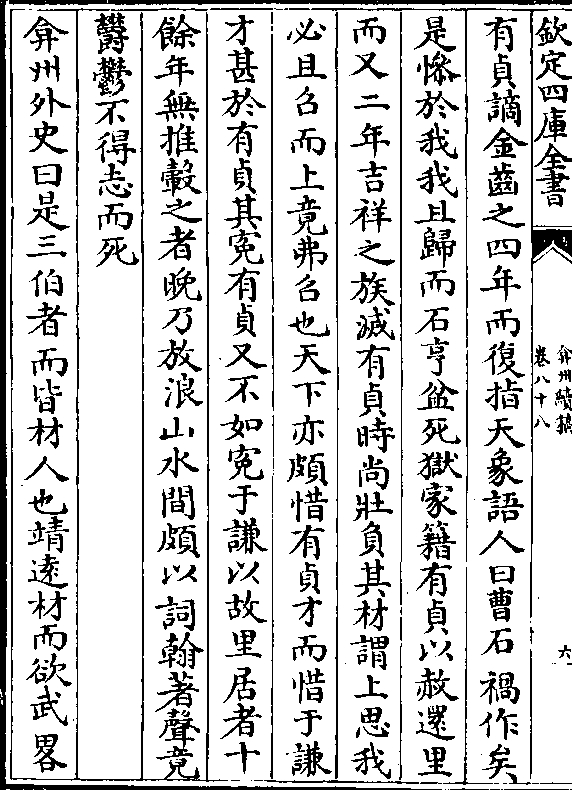 欽定四庫全書
弇州續稿
卷八十八
六
有貞謫金齒之四年而復指天象語人曰曹石禍作矣
是慘於我我且歸而石亨盆死獄家籍有貞以赦還里
而又二年吉祥之族滅有貞時尚壯負其材謂上思我
必且召而上竟弗召也天下亦頗惜有貞才而惜于謙
才甚於有貞其寃有貞又不如寃于謙以故里居者十
餘年無推轂之者晚乃放浪山水間頗以詞翰著聲竟
欝鬱不得志而死
弇州外史曰是三伯者而皆材人也靖逺材而欲武畧